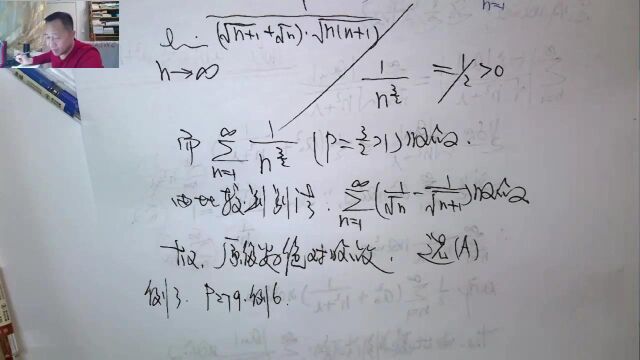 lim n→∞ 1/((√n+1 + √n)·√n(n+1)) / 1/n^{3/2} = 1/2 > 0
n=1
而 ∑_{n=1}^{∞} 1/n^{3/2} (P = 3/2 > 1) 收敛.
由比较判别法. ∑_{n=1}^{∞} (1/√n − 1/√n+1) 收敛
故. 原级数绝对收敛. 选(A)
例3. P279.例6.